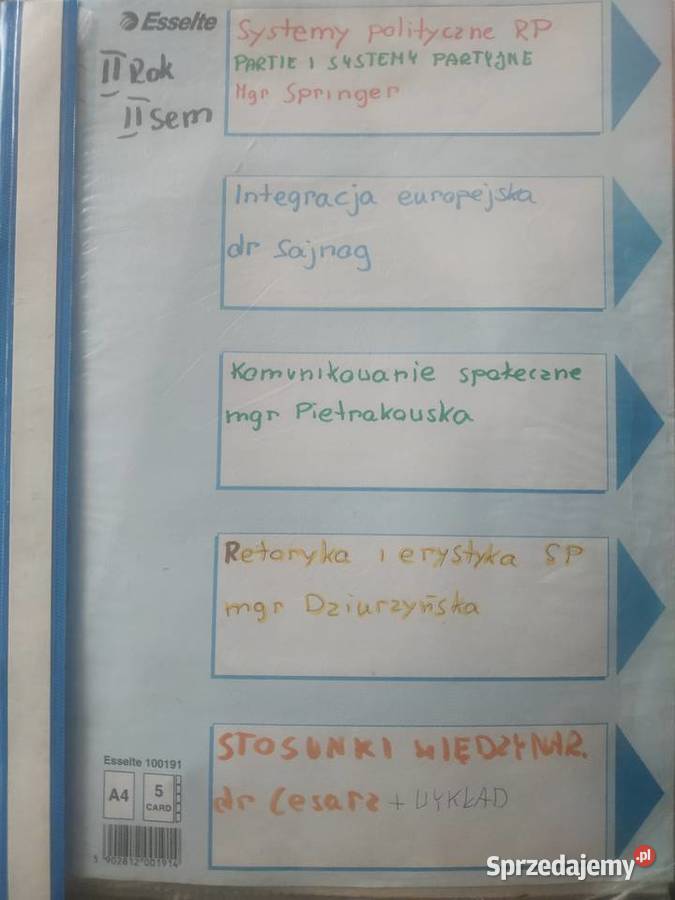 Esselte
II Rok
II sem
Systemy polityczne RP
PARTIE I SYSTEMY PARTYJNE
Mgr Springer
Integracja europejska
dr Sajnog
Komunikowanie społeczne
mgr Pietrakowska
Retoryka i erystyka SP
mgr Dziurzyńska
STOSUNKI MIĘDZYNAR.
dr Cesarz + WYKŁAD
Esselte 100191
A4
5
CARD
5 902812 001914
Sprzedajemy.pl